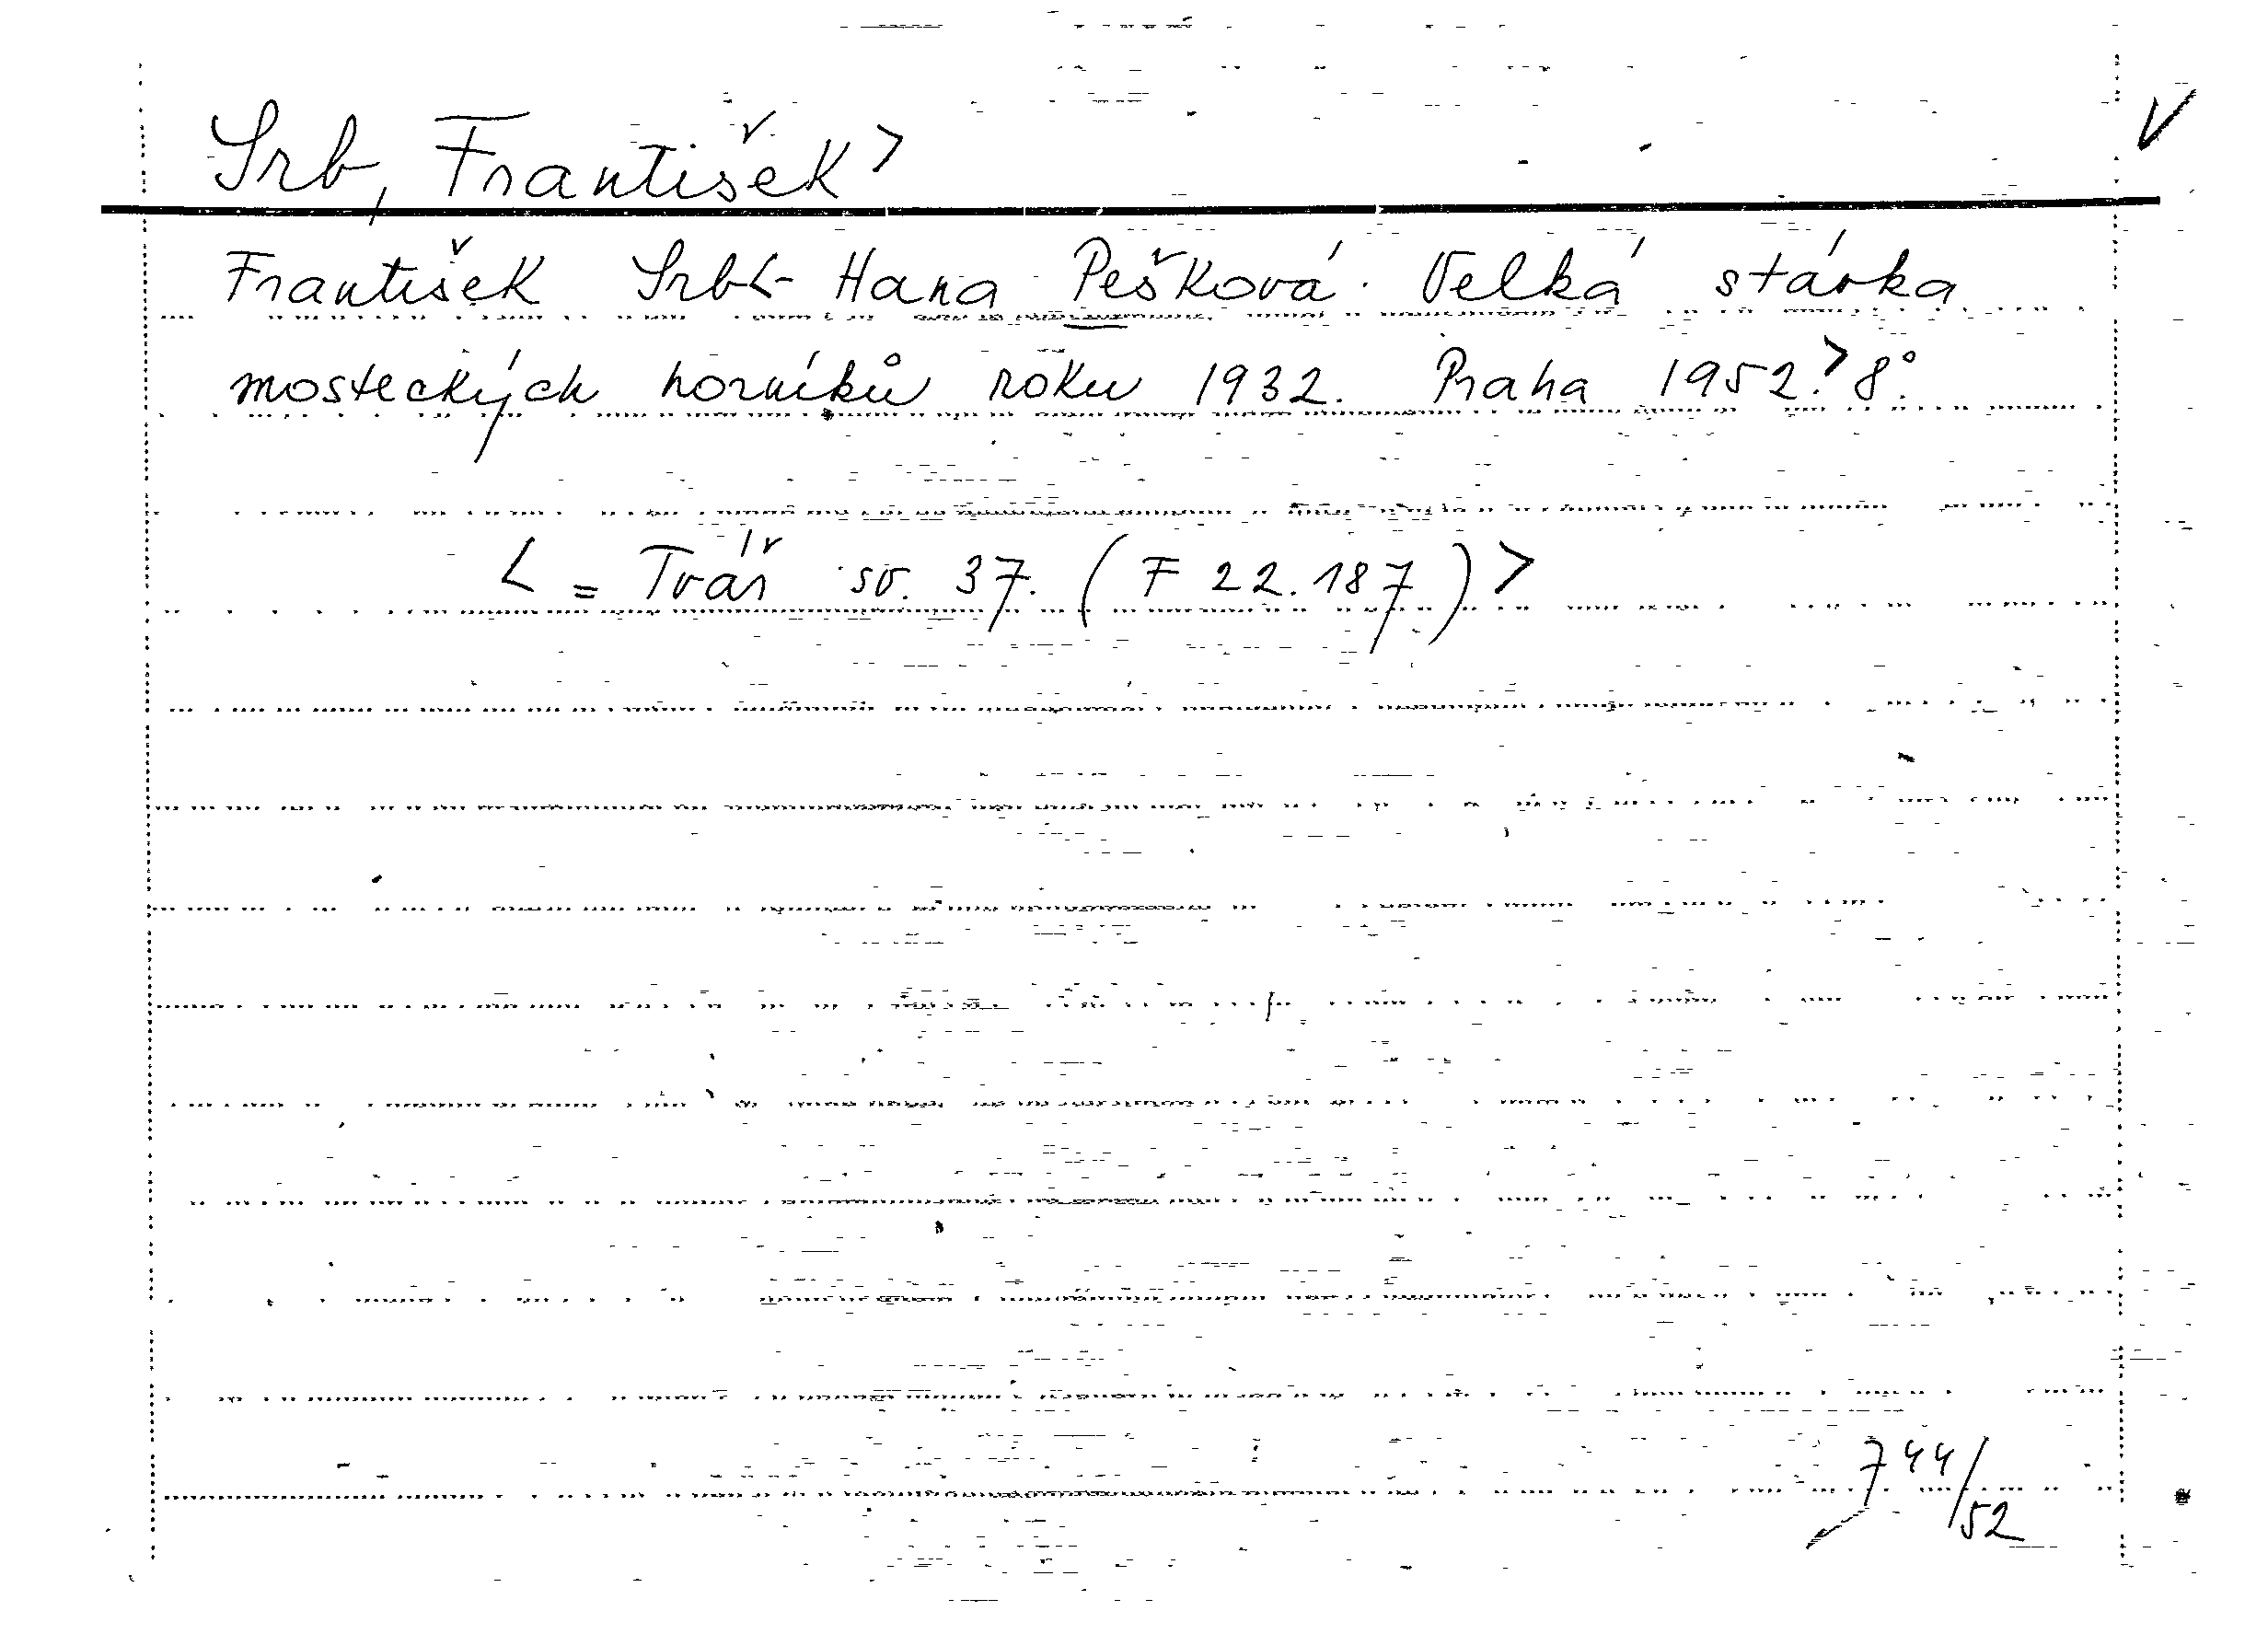 Srb, František>
V
František Srb<- Hana Pešková. Velká stávka
mosteckých horníků roku 1932. Praha 1952.> 8°.
< = Tvář sv. 37. (F 22.187.)>
744/52